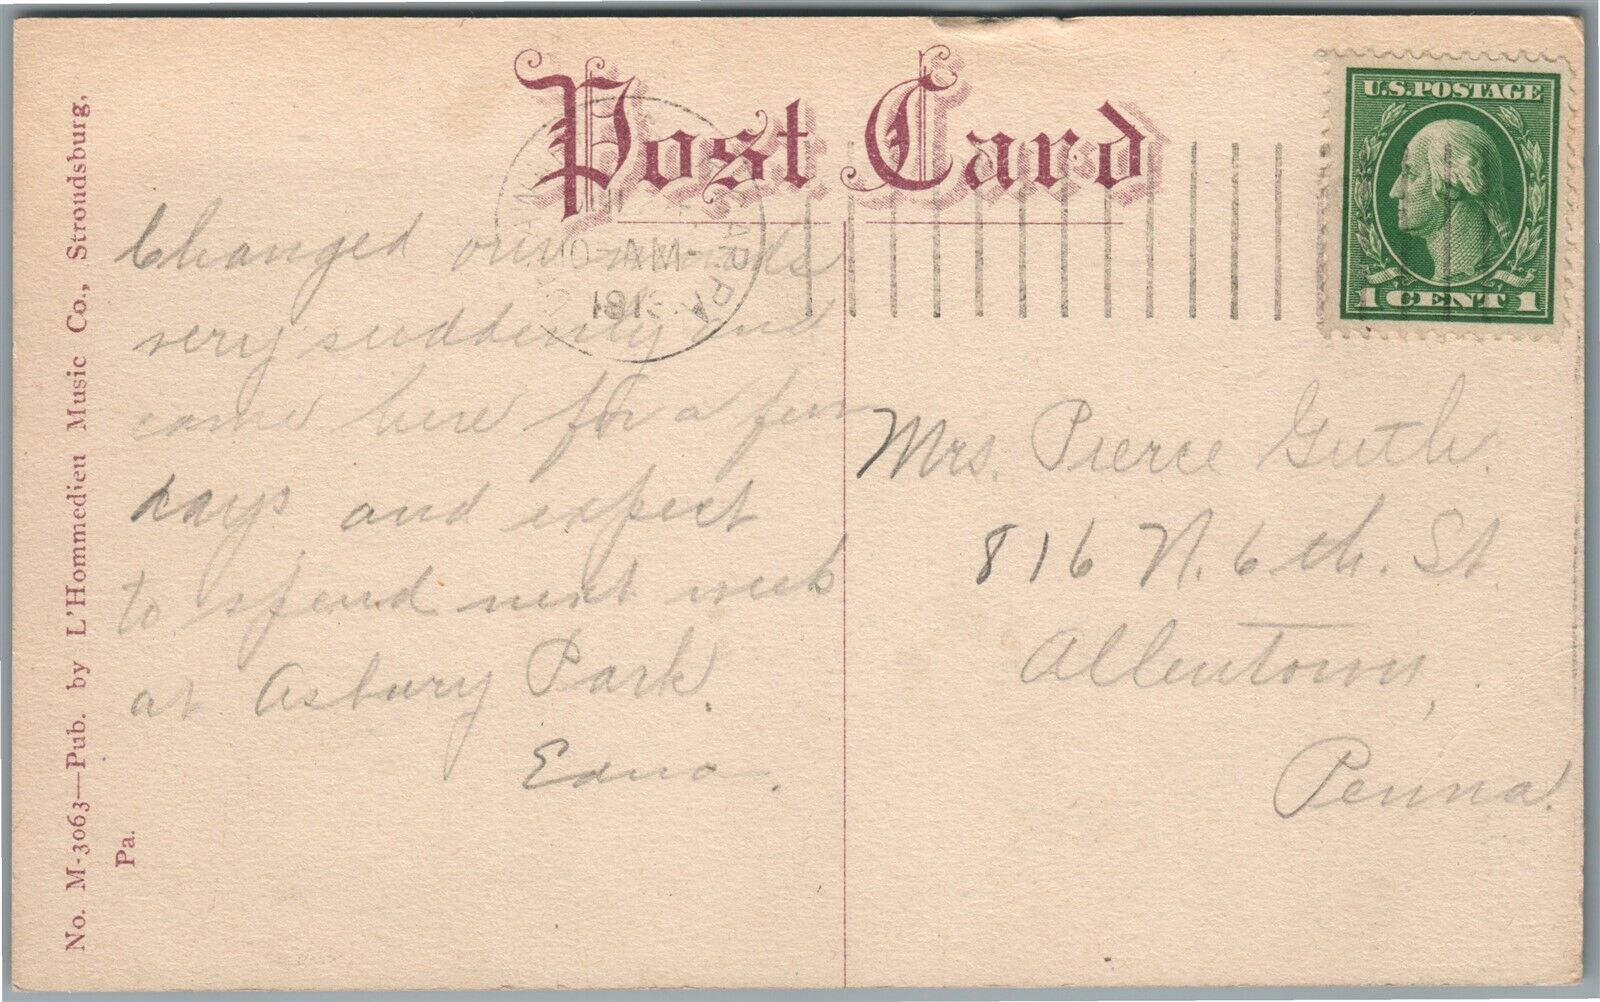 Post Card
U.S. POSTAGE
1 CENT 1
10-AM
Changed our minds
very suddenly and
came here for a few
days and expect
to spend next week
at Asbury Park.
Edna.
Mrs. Pierce Guth.
816 N. 6th. St
Allentown,
Penna.
No. M-3063—Pub. by L'Hommedieu Music Co., Stroudsburg,
Pa.